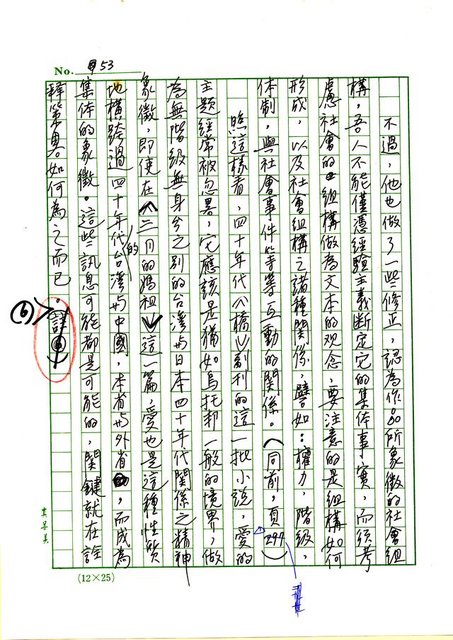 No. 53
不過,他也做了一些修正,認為作品所象徵的社會組
構,吾人不能僅憑經驗主義斷定它的集体事實,而須考
慮社會的組構做為文本的觀念,要注意的是組構如何
形成,以及社會組構之諸種關係,譬如:權力,階級,
体制,與社會事件等等互動的關係。(同前,頁299)
照這樣看,四十年代《橋》副刊的這一批小說,愛的
主題經常被忽略,它應該是猶如烏托邦一般的境界,做
為無階級無身分之別的台灣与日本四十年代關係之精神
象徵,即使在《三月的媽祖》這一篇,愛也是這種性質
地橫跨過四十年代的台灣与中國,本省与外省,而成為
集体的象徵。這些訊息可能都是可能的,關鍵就在詮
釋策略如何為之而已。
⑥
(12×25)